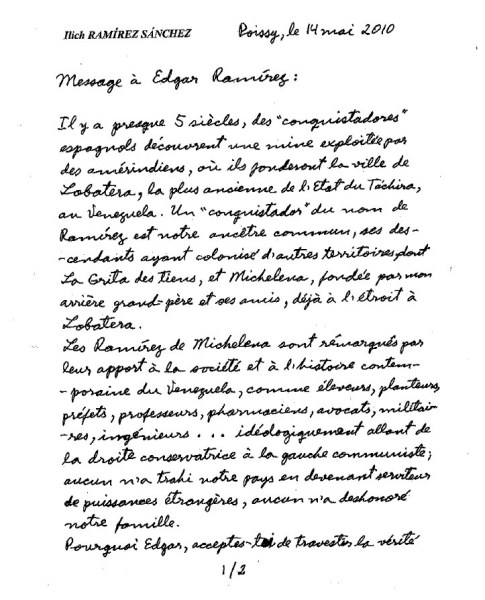 Ilich RAMÍREZ SÁNCHEZ
Poissy, le 14 mai 2010
Message à Edgar Ramírez :
Il y a presque 5 siècles, des "conquistadores"
espagnols découvrent une mine exploitée par
des amérindiens, où ils fonderont la ville de
Lobatera, la plus ancienne de l'Etat du Táchira,
au Venezuela. Un "conquistador" du nom de
Ramírez est notre ancêtre commun, ses des-
-cendants ayant colonisé d'autres territoires, dont
La Grita des tiens, et Michelena, fondée par mon
arrière grand-père et ses amis, déjà à l'étroit à
Lobatera.
Les Ramírez de Michelena sont rémarqués par
leur apport à la société et à l'histoire contem-
-poraine du Venezuela, comme éleveurs, planteurs,
préfets, professeurs, pharmaciens, avocats, militai-
-res, ingénieurs ... idéologiquement allant de
la droite conservatrice à la gauche communiste;
aucun n'a trahi notre pays en devenant serviteur
de puissances étrangères, aucun n'a deshonoré
notre famille.
Pourquoi Edgar, acceptes-toi de travestir la vérité
1/2